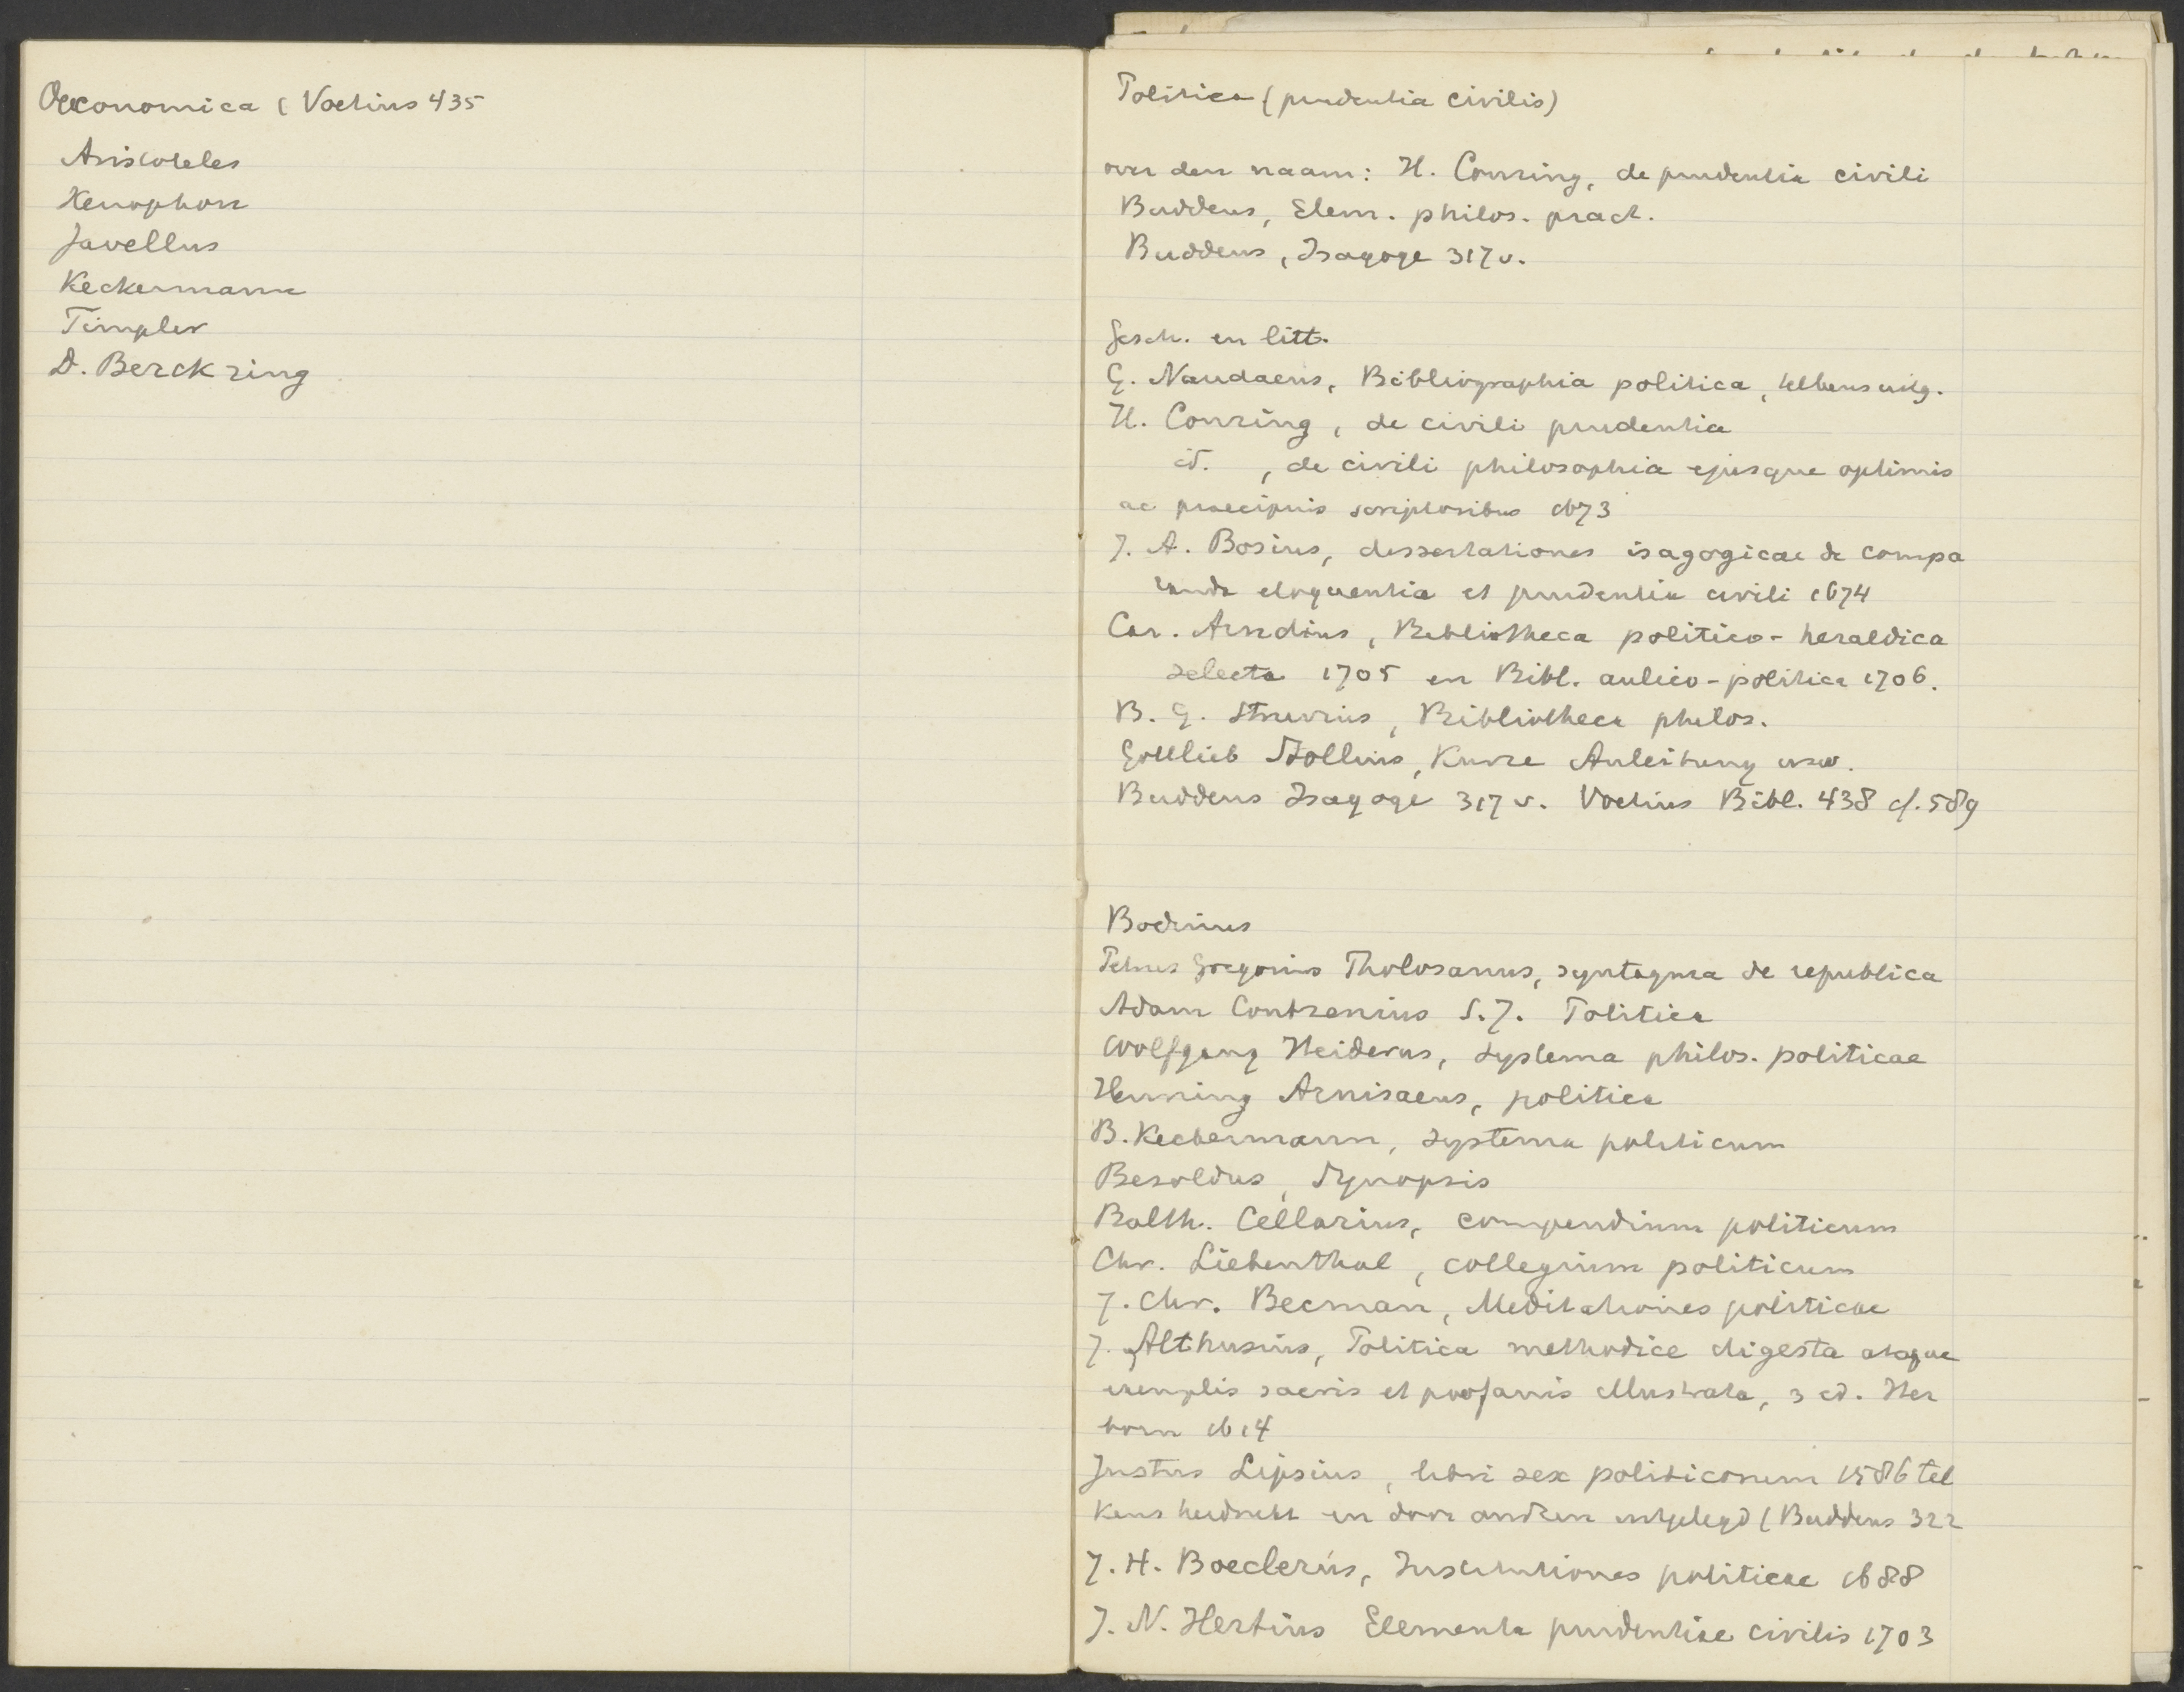 Oeconomica (Voetius 435
Aristoteles
Xenophon
Javellus
Keckermann
Timpler
D. Berckring
Politica (prudentia civilis)
over den naam: H. Conring, de prudentia civili
Buddeus, Elem. philos. pract.
Buddeus, Isagoge 317 v.
Gesch. en litt.
G. Naudaeus, Bibliographia politica, telkens uitg.
H. Conring, de civili prudentia
id. , de civili philosophia ejusque optimis
ac praecipuis scriptoribus 1673
J. A. Bosius, dissertationes isagogicae de compa
randa eloquentia et prudentia civili 1674
Car. Arndius, Bibliotheca politico-heraldica
selecta 1705 en Bibl. aulico-politica 1706.
B. G. Struvius, Bibliotheca philos.
Gottlieb Stollius, Kurze Anleitung usw.
Buddeus Isagoge 317 v. Voetius Bibl. 438 cf. 589
Bodinus
Petrus Gregorius Tholosanus, syntagma de republica
Adam Contzenius S.J. Politica
Wolfgang Heiderus, Systema philos. politicae
Henning Arnisaeus, politica
B. Keckermann, systema politicum
Besoldus, Synopsis
Balth. Cellarius, compendium politicum
Chr. Liebenthal, collegium politicum
J. Chr. Becman, Meditationes politicae
J. Althusius, Politica methodice digesta atque
exemplis sacris et profanis illustrata, 3 ed. Her
born 1614
Justus Lipsius, libri sex politicorum 1586 tel
kens herdrukt en door anderen uitgelegd (Buddeus 322
J. H. Boeclerus, Institutiones politicae 1688
J. N. Hertius Elementa prudentiae civilis 1703